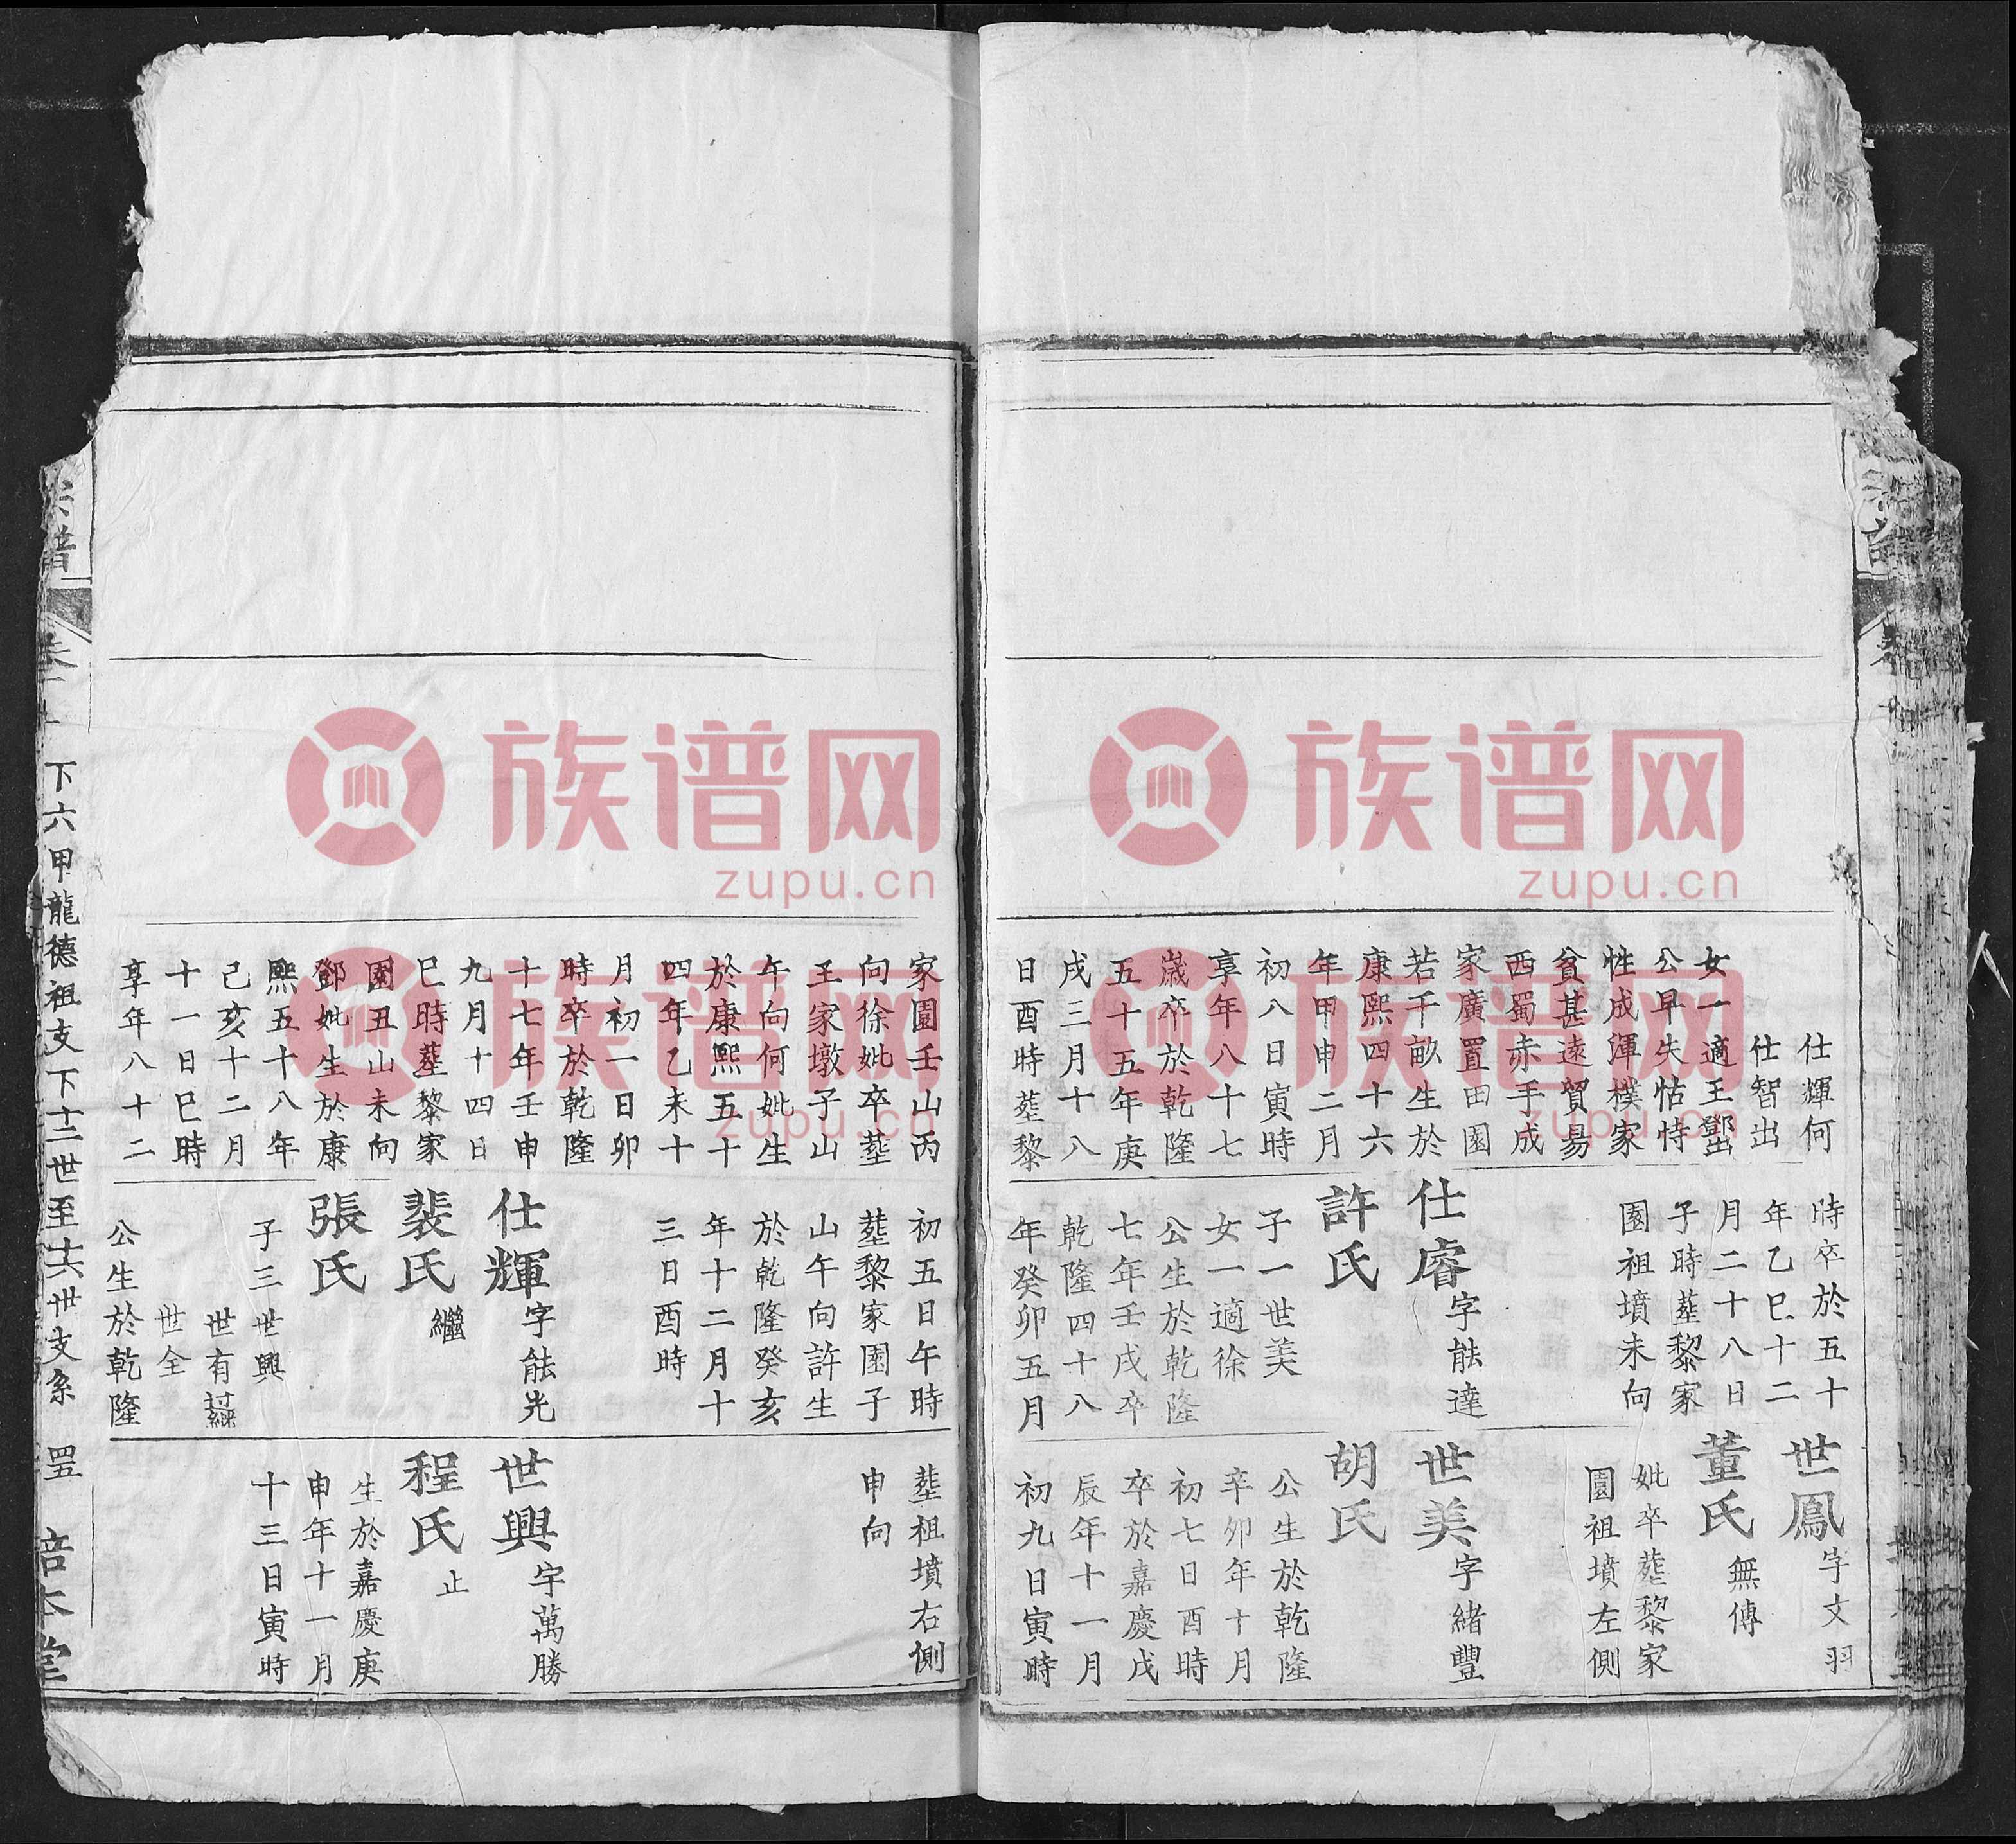 仕輝何
仕智出
女一適王鄧出
公早失怙恃
性成渾樸家
貧甚遠貿易
西蜀赤手成
家廣置田園
若千畝生於
康熙四十六
年甲申二月
初八日寅時
享年八十七
歲卒於乾隆
五十五年庚
戌三月十八
日酉時塟黎
時卒於五十
年乙巳十二
月二十八日
子時塟黎家
園祖墳未向
仕睿字能達
許氏
子一世美
女一適徐
公生於乾隆
七年壬戌卒
乾隆四十八
年癸卯五月
世鳳字文羽
董氏無傳
妣卒塟黎家
園祖墳左側
世美字緒豐
胡氏
公生於乾隆
辛卯年十月
初七日酉時
卒於嘉慶戊
辰年十一月
初九日寅時
家園壬山丙
向徐妣卒塟
王家墩子山
午向何妣生
於康熙五十
四年乙未十
月初一日卯
時卒於乾隆
十七年壬申
九月十四日
巳時塟黎家
園丑山未向
鄧妣生於康
熙五十八年
己亥十二月
十一日巳時
享年八十二
初五日午時
塟黎家園子
山午向許生
於乾隆癸亥
年十二月十
三日酉時
仕輝字能光
裴氏繼
張氏
子三世興
世有過繼
世全
公生於乾隆
塟祖墳右側
申向
世興字萬勝
程氏止
生於嘉慶庚
申年十一月
十三日寅時
宗譜
下六甲龍德祖支下十二世至十六世支系
培本堂
族谱网
zupu.cn
族谱网
zupu.cn
族谱网
zupu.cn
族谱网
zupu.cn